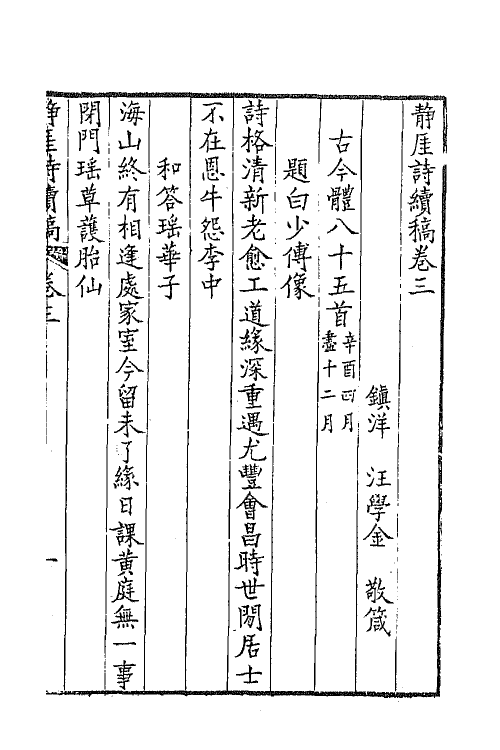 静厓詩續稿卷三
鎮洋　汪學金　敬箴
古今體八十五首辛酉四月
盡十二月
題白少傅像
詩格清新老愈工道緣深重遇尤豐會昌時世閒居士
不在恩牛怨李中
和答瑶華子
海山終有相逢處家室今留未了緣日課黄庭無一事
閉門瑶草護胎仙
静厓詩續稿　卷三　一